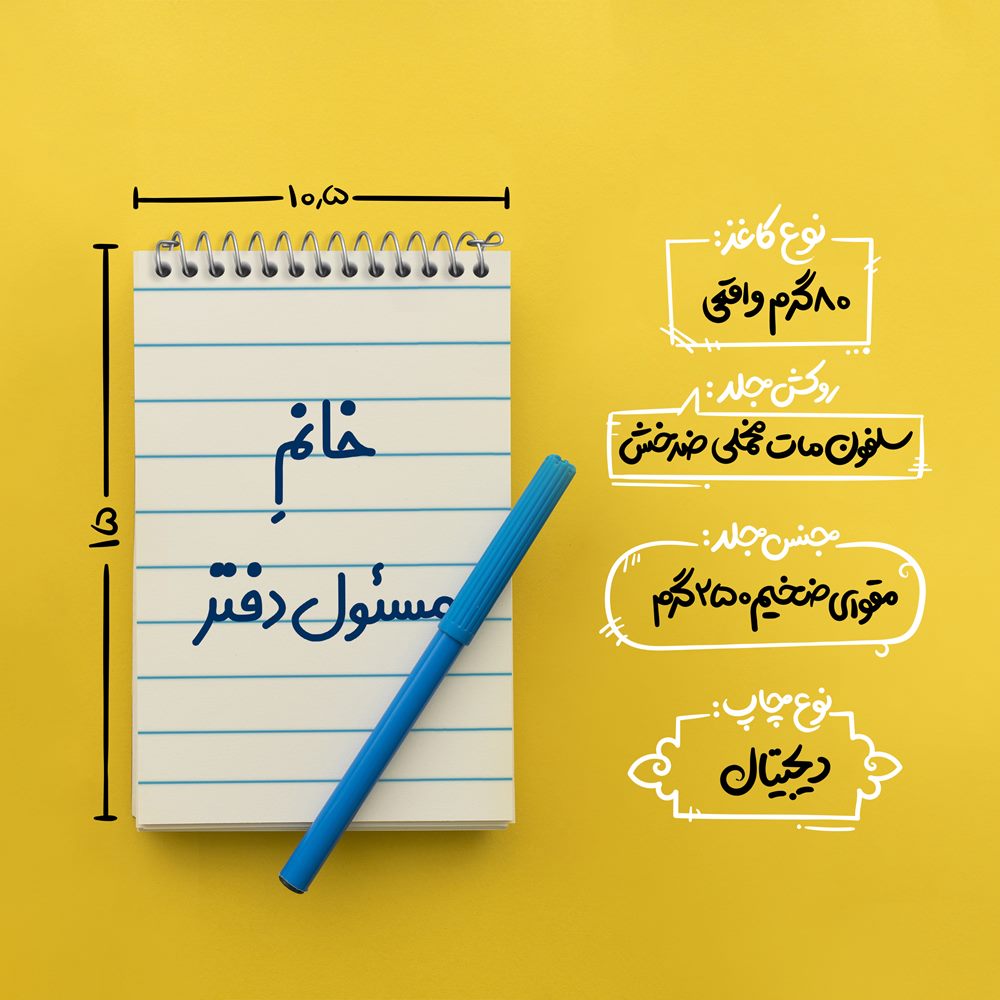 ۱۰٫۵
۱۵
خانمِ
مسئول دفتر
نوع کاغذ:
۸۰گرم واقعی
روکش جلد:
سلفون مات مخملی ضدخش
جنس جلد:
مقوای ضخیم ۲۵۰گرم
نوع چاپ:
دیجیتال